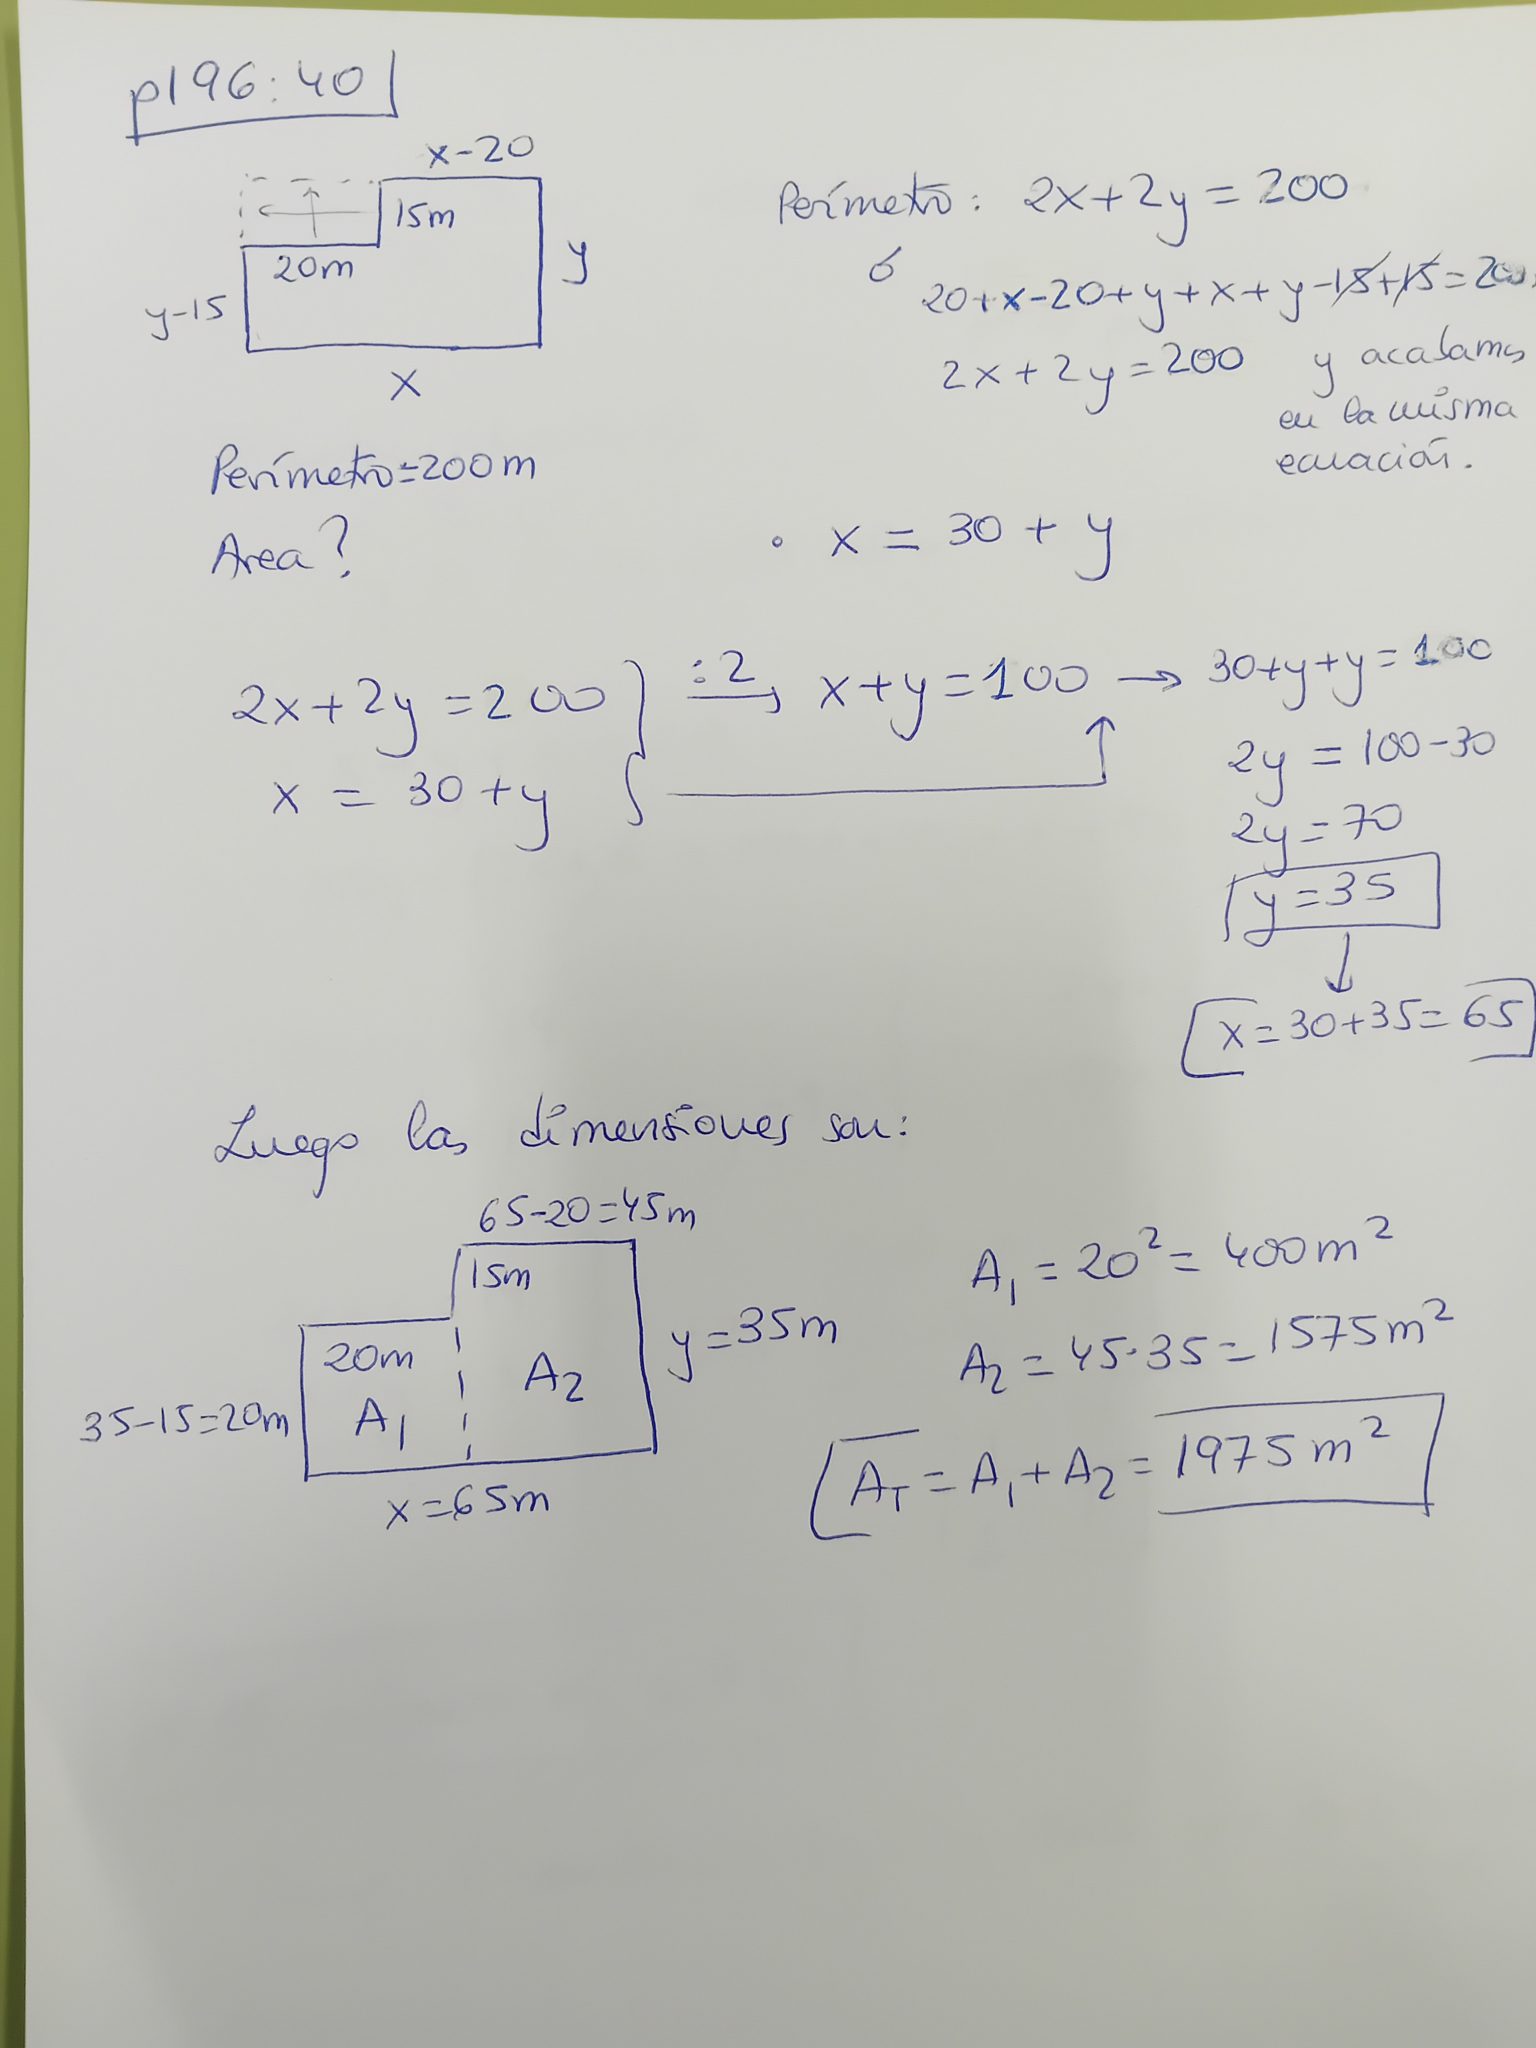 p196:40
x-20
15m
20m
y
y-15
x
Perímetro: 2x+2y=200
ó
20+x-20+y+x+y-15+15=200
2x+2y=200 y acabamos
en la misma
ecuación.
Perímetro=200m
Area?
• x = 30 + y
2x+2y=200 :2 x+y=100 → 30+y+y=100
x = 30+y
2y = 100-30
2y=70
y=35
x=30+35=65
Luego las dimensiones son:
65-20=45m
15m
20m
y=35m
A₂
35-15=20m
A₁
x=65m
A₁ = 20² = 400m²
A₂ = 45·35 = 1575m²
A_T = A₁ + A₂ = 1975m²